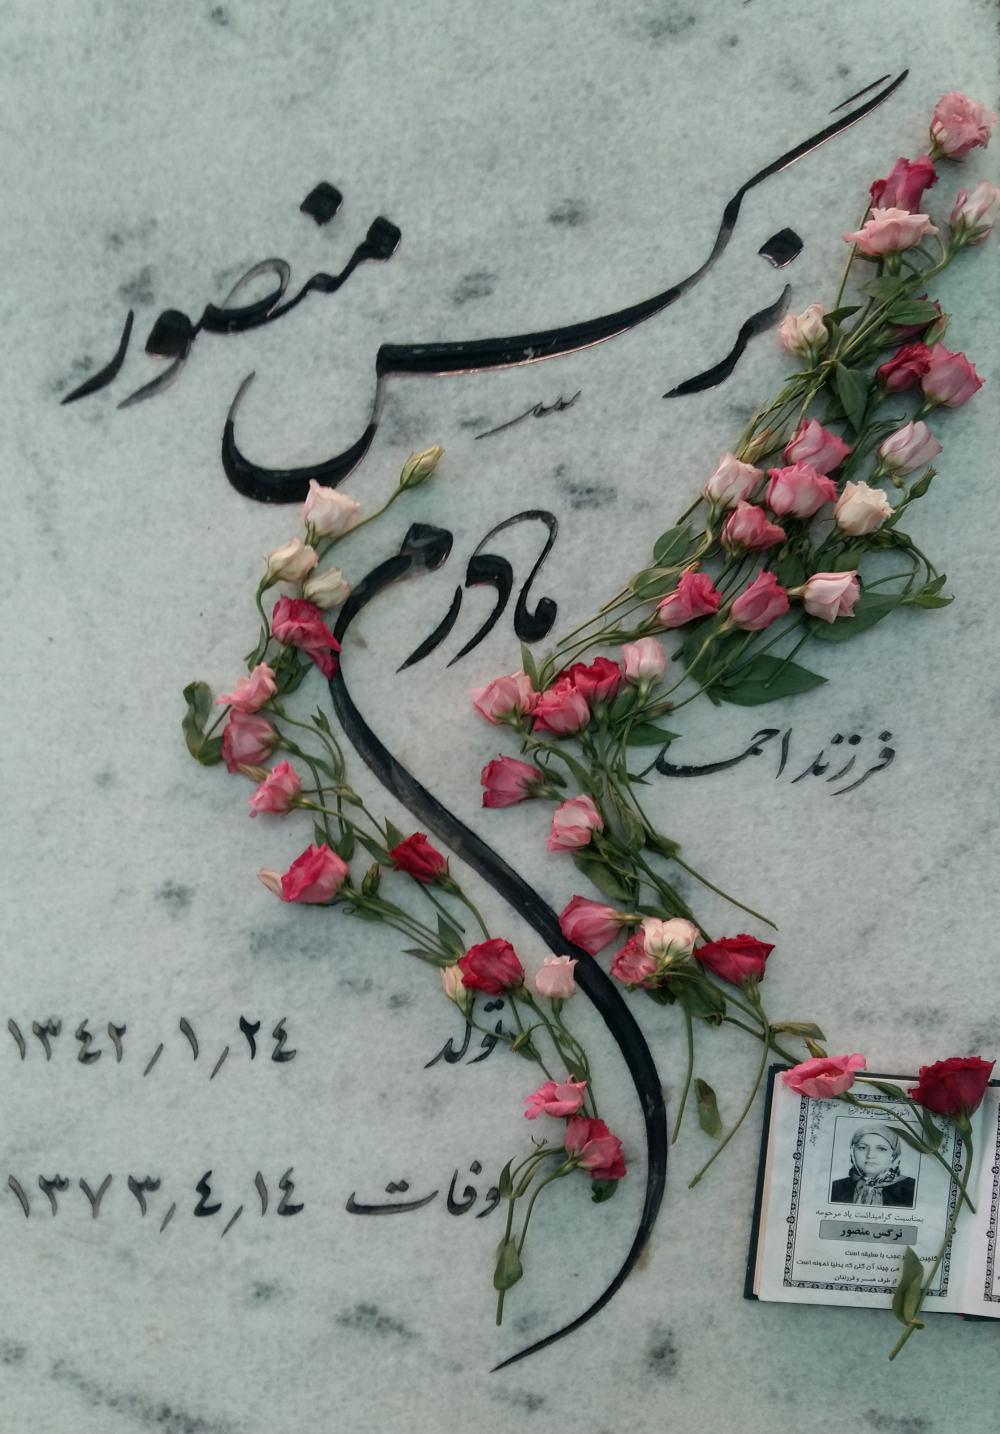 نرگس منصور
مادرم
فرزند احمد
تولد ۱۳۴۲٫۱٫۲۴
وفات ۱۳۷۳٫۴٫۱۴
بمناسبت گرامیداشت یاد مرحومه
نرگس منصور
گلچین عجب با سلیقه است
می چیند آن گلی که بدنیا نمونه است
از طرف همسر و فرزندان